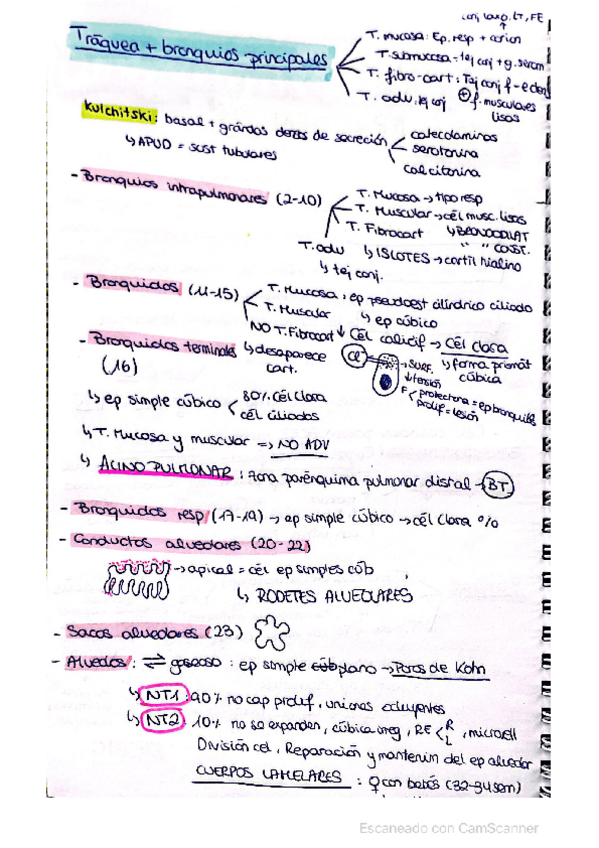 conj laxo, LT, FE
Tráquea + bronquios principales
T. mucosa: Ep. resp + corion
T. submucosa = tej conj + g. serom
T. fibro-cart: Tej conj f-e den
⊕ f. musculares lisas
T. adv: tej conj
Kulchitski: basal + gránulos densos de secreción
catecolaminas
serotonina
calcitonina
↳ APUD = sust tubulares
- Bronquios intrapulmonares (2-10)
T. Mucosa → tipo resp
T. Muscular → cél musc. lisas
↳ BRONCODILAT
T. Fibrocart " " CONST.
↳ ISLOTES → cartil hialino
T. adv
↳ tej conj.
- Bronquiolos (11-15)
T. Mucosa: ep pseudoest cilíndrico ciliado
↳ ep cúbico
T. Muscular
NO T. Fibrocart ↓ Cél calicif → Cél clara
↳ desaparece cart.
↳ forma promót cúbica
- Bronquiolos terminales (16)
Cl
→ surf.
↓ tensión
F protectora = ep bronquiolos
prolif = lesión
↳ ep simple cúbico
80% cél clara
cél ciliadas
↳ T. Mucosa y muscular => NO ADV
↳ ACINO PULMONAR: zona parénquima pulmonar distal → BT
- Bronquiolos resp (17-19) → ep simple cúbico → cél clara %
- Conductos alveolares (20-22)
→ apical = cél ep simples cúb
↳ RODETES ALVEOLARES
- Sacos alveolares (23)
- Alveolos: ⇌ gaseoso: ep simple cúb plano → Poros de Kohn
↳ NT1: 90% no cap prolif, uniones ocluyentes
↳ NT2 10% no se expanden, cúbica irreg, RE < R L, microvell
División cel, Reparación y mantenim del ep alveolar
CUERPOS LAMELARES: ♀ con bebés (32-34 sem)
Escaneado con CamScanner